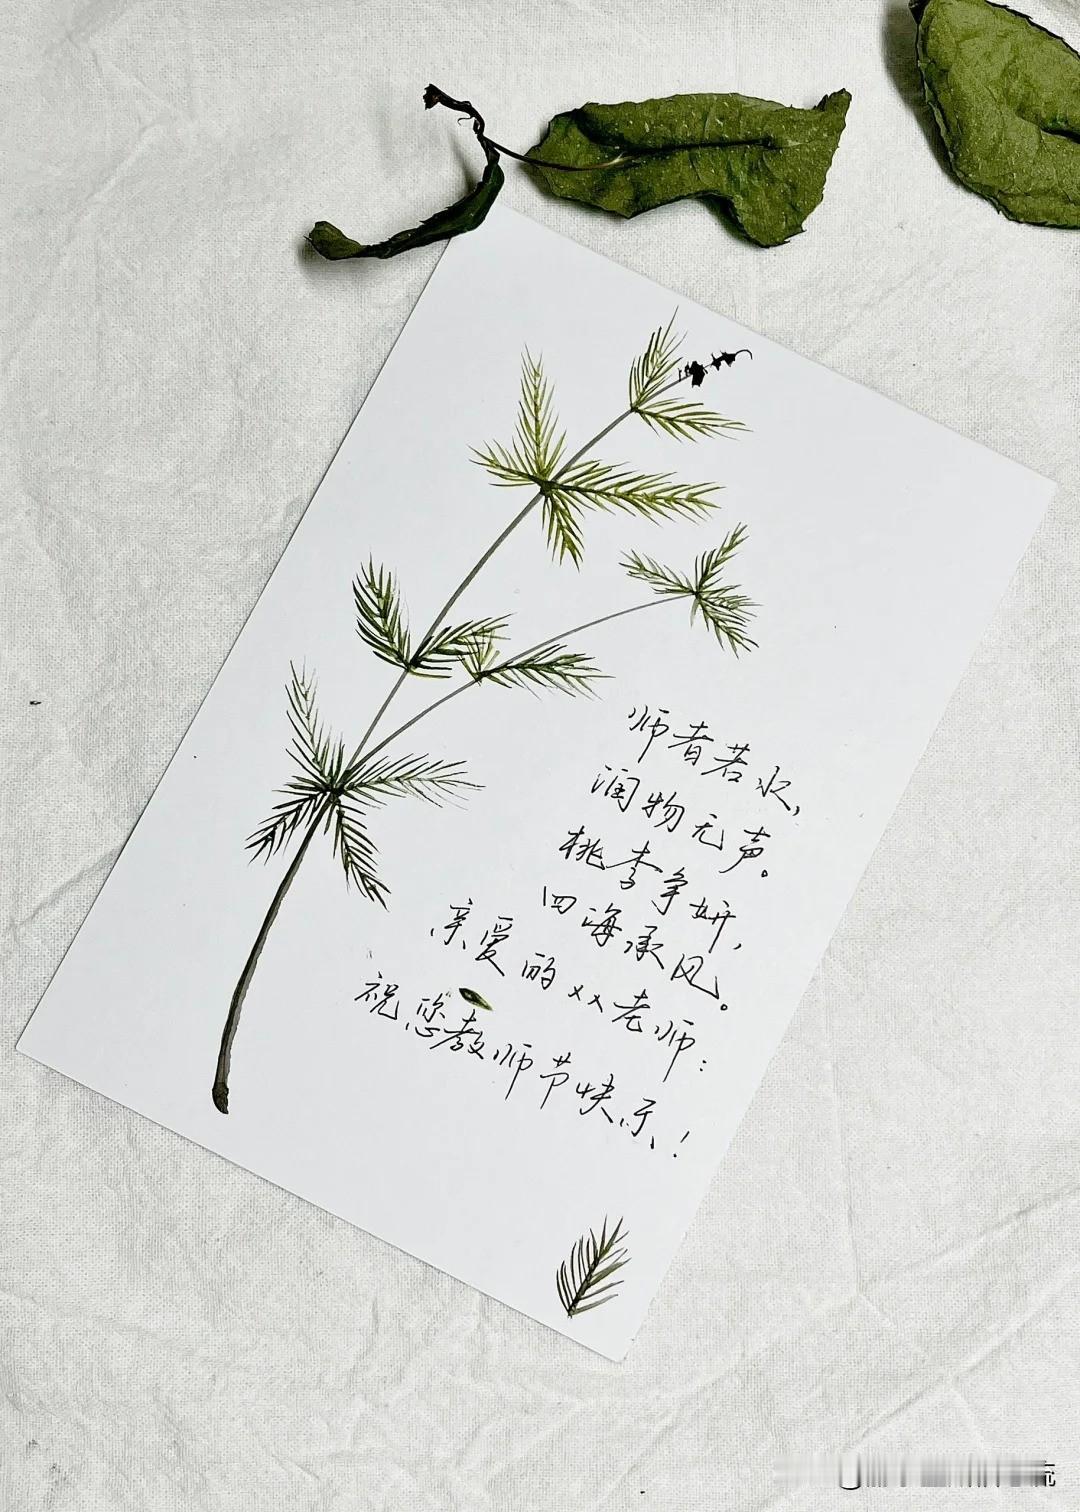 师者若水，
润物无声。
桃李争妍，
四海承风。
亲爱的xx老师：
祝您教师节快乐！